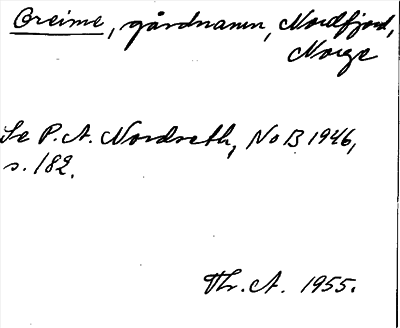 Breime, gårdnamn, Nordfjord,
Norge
Se P. A. Nordseth, NoB 1946,
s. 182.
Th. A. 1955.